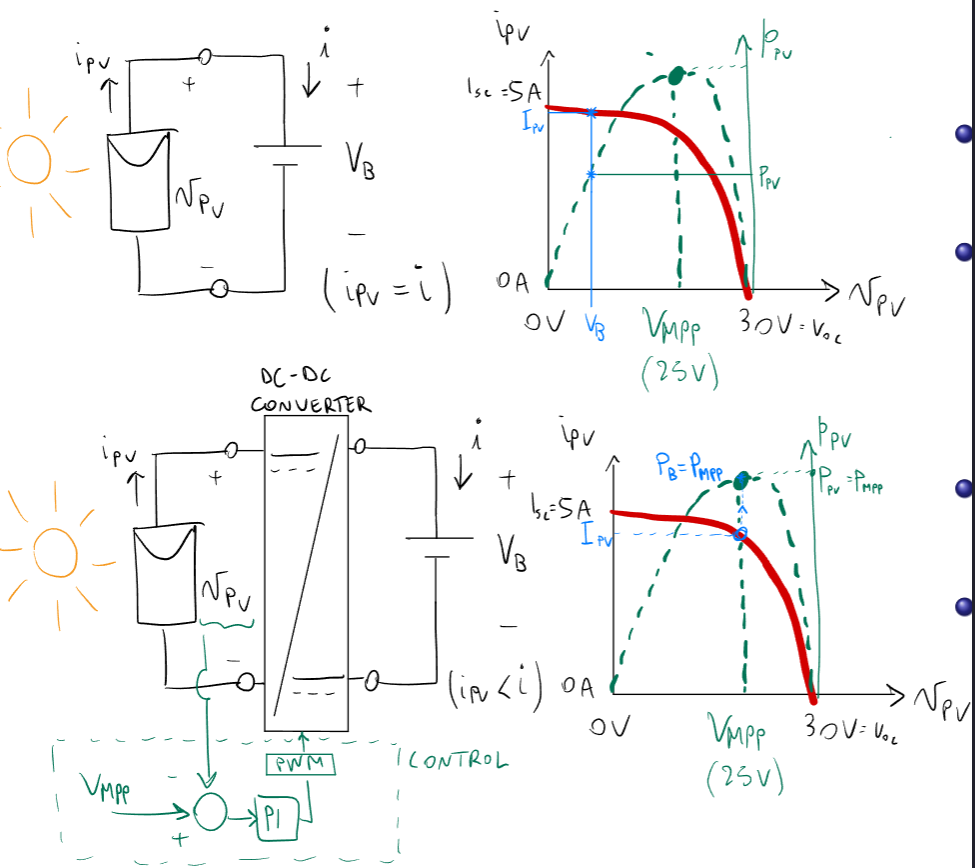 iPV
+
i
+
VB
−
vPV
−
(iPV = i)
iPV
pPV
Isc = 5A
IPV
PPV
0A
0V
VB
VMPP
(25V)
30V = Voc
vPV
DC-DC
CONVERTER
iPV
+
i
+
VB
−
vPV
−
(iPV < i)
PWM
CONTROL
VMPP
−
+
PI
iPV
pPV
PB = PMPP
PPV = PMPP
Isc = 5A
IPV
0A
0V
VMPP
(25V)
30V = Voc
vPV